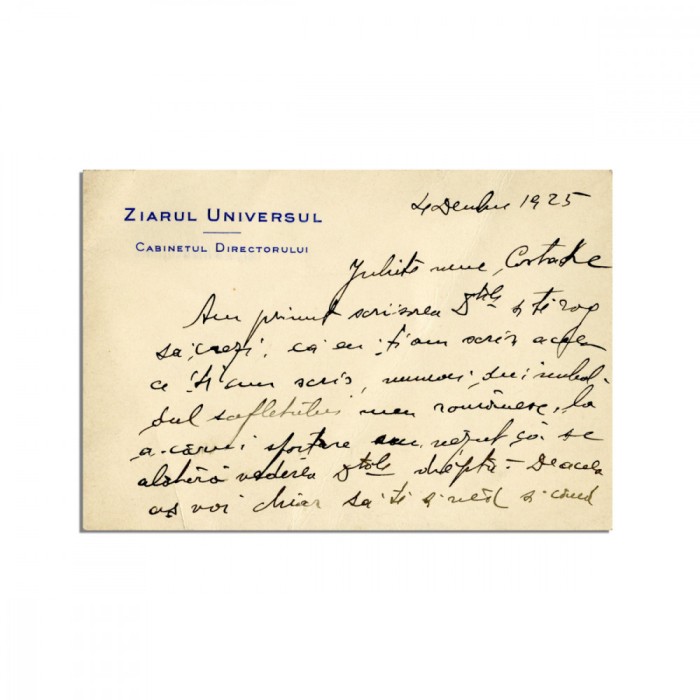 ZIARUL UNIVERSUL
CABINETUL DIRECTORULUI
1925
Iubite nene, Costache
Am primit scrisorea Dtale și te rog
să crezi, că eu ți am scris aceea
ce ți am scris, numai din imbol-
dul sufletului meu românesc, la
a cărui sfortare am văzut că se
alătură vederea Dtale dreaptă. De aceea
aș voi chiar să te și văd și când